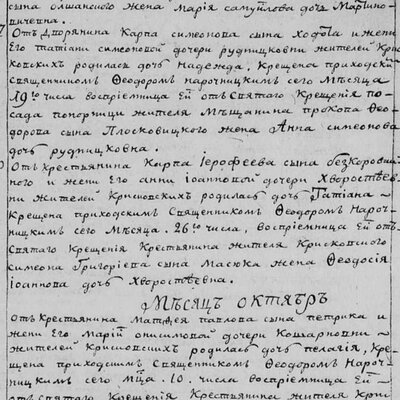 сына Олшанского жена Мария Самуилова дочъ Мартино-
вичевна.
Отъ Дворянина Карпа Симеонова сына Ходота и жены
Его Татiаны Симеоновой дочери Рудницковны жителей Крис-
ковскихъ родилась дочъ Надежда, Крещена приходскимъ
Священникомъ Феодоромъ Нарочницкимъ сего Мѣсяца
19го числа воспрiемница Ей отъ Святаго Крещенiя по-
сада Понорницы жителя Мѣщанина Прокопа Фео-
дорова сына Плосковицкого жена Анна Симеонова
дочъ Рудницковна.
Отъ Крестьянина Карпа Iерофеева сына Безкоровай-
ного и жены Его Анны Iоанновой дочери Хворостѣв-
ны жителей Крисковскихъ родилась дочъ Татiана
Крещена приходскимъ Священникомъ Феодоромъ Нароч-
ницкимъ сего Мѣсяца. 26го числа, воспрiемница Ей отъ
Святаго Крещенiя Крестьянина жителя Крисковского
Симеона Григорiева сына Масюка жена Феодосiя
Iоаннова дочъ Хворостѣвна.
Мѣсяцъ Октябръ
Отъ Крестьянина Матфея Павлова сына Петрика и
жены Его Марiи Онисимовой дочери Кошарновны
жителей Крисковскихъ родилась дочъ Пелагiя, Кре-
щена приходскимъ Священникомъ Феодоромъ Нароч-
ницкимъ сего Мѣсяца. 10. числа воспрiемница Ей
отъ Святаго Крещенiя Крестьянина жителя Кри